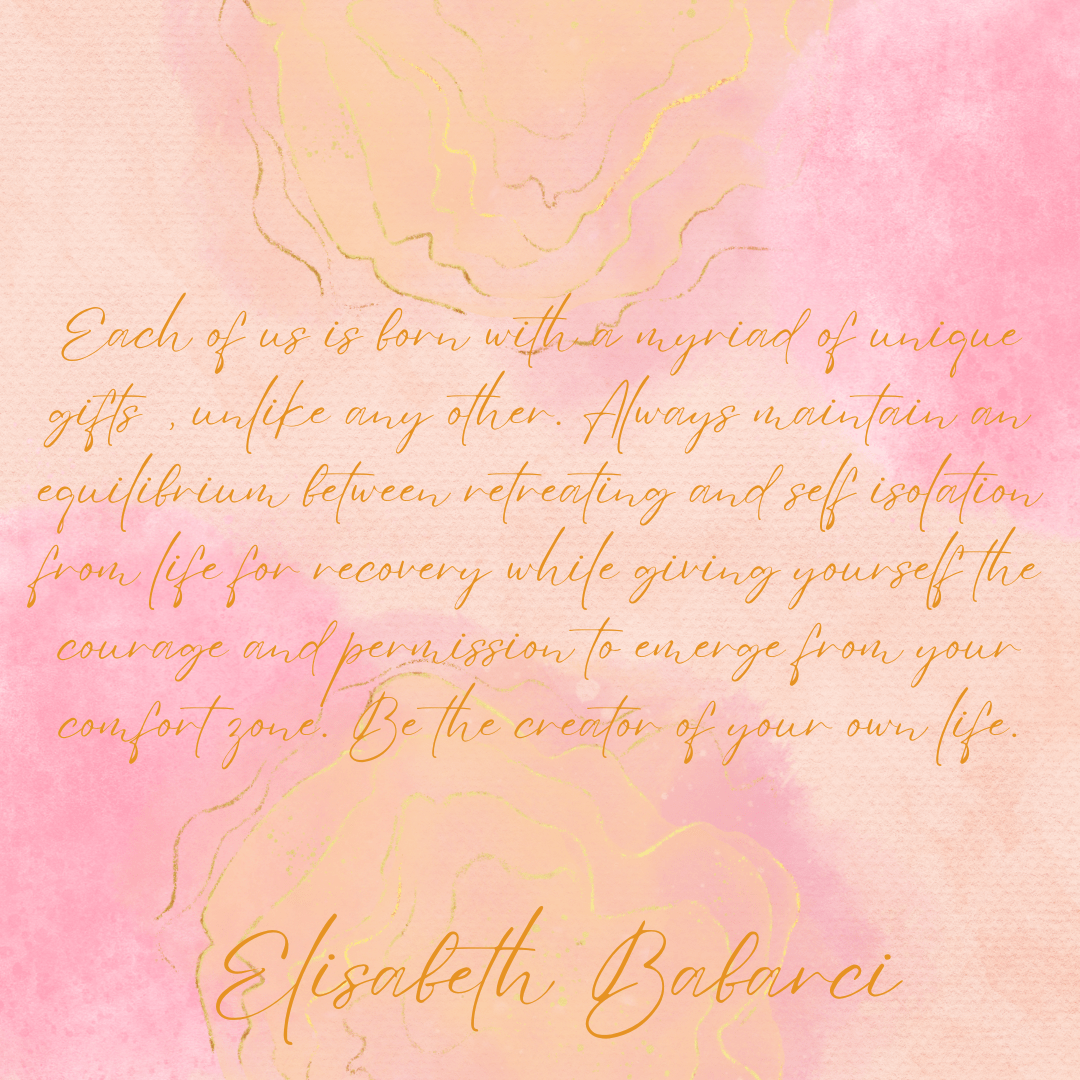 Each of us is born with a myriad of unique
gifts , unlike any other. Always maintain an
equilibrium between retreating and self isolation
from life for recovery while giving yourself the
courage and permission to emerge from your
comfort zone. Be the creator of your own life.
Elisabeth Babarci